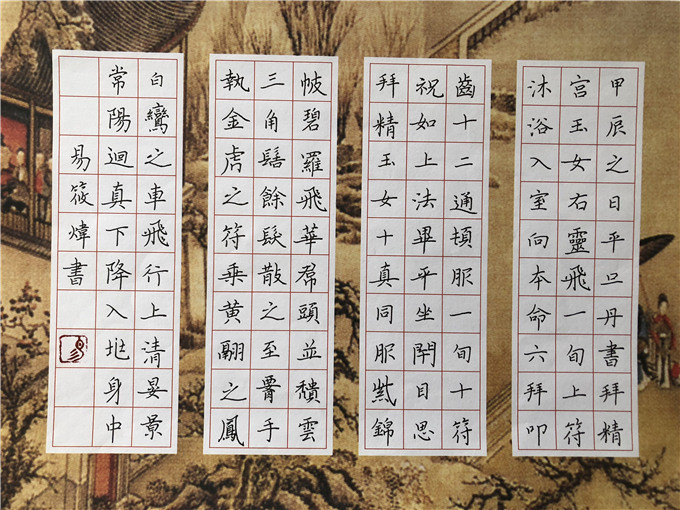 甲辰之日平旦丹書拜精
宫玉女右靈飛一旬上符
沐浴入室向本命六拜叩
齒十二通頓服一旬十符
祝如上法畢平坐閉目思
拜精玉女十真同服紫錦
帔碧羅飛華帬頭並穨雲
三角髻餘髮散之至腰手
執金虎之符乘黄翮之鳳
白鸞之車飛行上清晏景
常陽迴真下降入兆身中
易筱煒書
易